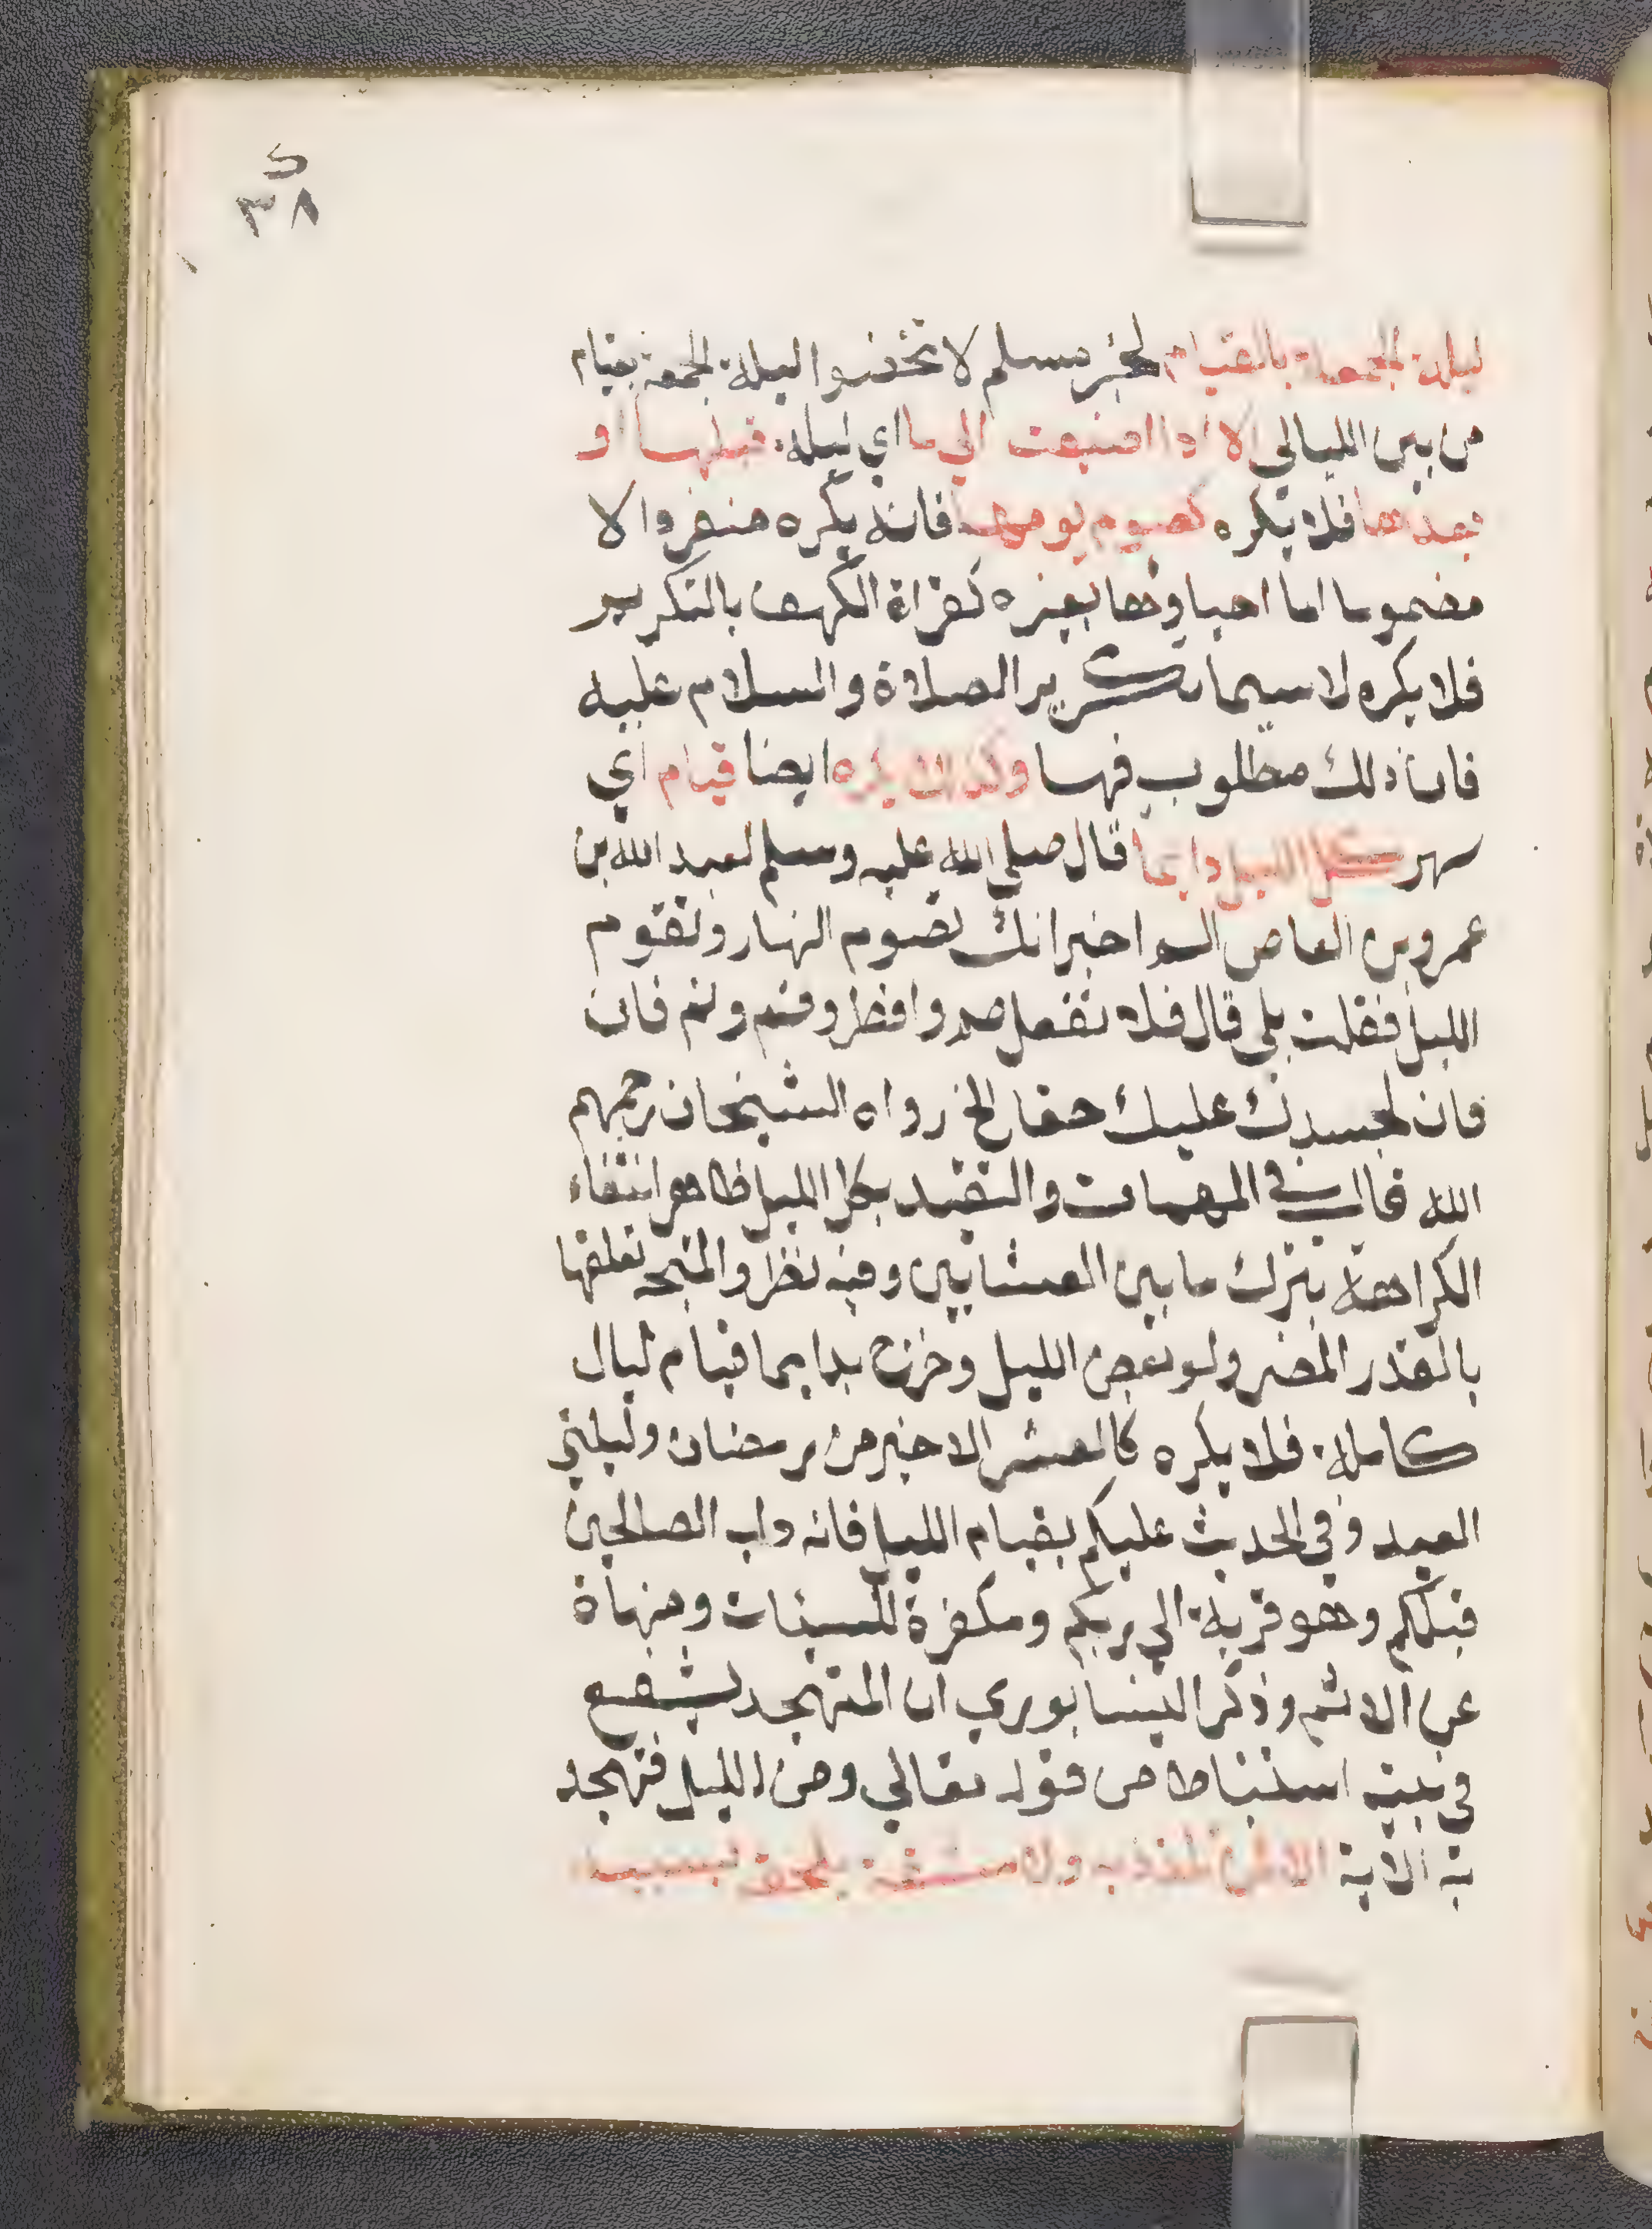 ٣٨
ليلة الجمعة بالقيام لخبر مسلم لا تخصوا ليلة الجمعة بقيام
من بين الليالي الا اذا اضيفت الي ما اي ليلة قبلها او
بعدها فلا يكره كصوم يومها فانه يكره منفردا لا
مضموما اما احياوها بغيره كقراة الكهف بالتكرير
فلا يكره لا سيما تكرير الصلاة والسلام عليه
فان ذلك مطلوب فيها وكذلك يكره ايضا قيام اي
سهر كل الليل دايما قال صلي الله عليه وسلم لعبد الله بن
عمرو بن العاص الم اخبر انك تصوم النهار وتقوم
الليل فقلت بلي قال فلا تفعل صم وافطر وقم ونم فان
فان لجسدك عليك حقا الخ رواه الشيخان رحمهم
الله قال في المهمات والتقيد بكل الليل ظاهر انتفاء
الكراهة بترك ما بين العشايين وفيه نظر والمتجه تعلقها
بالقدر المضر ولو بعض الليل وخرج بدايما قيام ليال
كاملة فلا يكره كالعشر الاخير من رمضان وليلتي
العيد وفي الحديث عليكم بقيام الليل فانه داب الصالحين
قبلكم وهو قربة الي ربكم ومكفرة للسيئات ومنهاة
عن الاثم وذكر النيسابوري ان المتهجد يشفع
في بيته استنباطا من قوله تعالي ومن الليل فتهجد
به الاية ولا مشقة يلحق بسببه